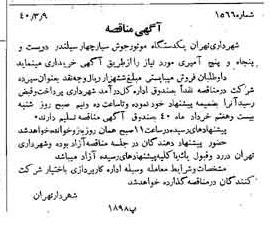 شماره ۱۵۶۶ ۴۰/۳/۹
آگهی مناقصه
شهرداری تهران یکدستگاه موتور جوش سیار چهار سیلندر دویست و
پنجاه و پنج آمپری مورد نیاز را از طریق آگهی خریداری مینماید
داوطلبان فروش میبایستی مبلغ شش هزار ریال وجه نقد بعنوان سپرده
شرکت در مناقصه نقداً بصندوق اداره کل درآمد شهرداری پرداخت و قبض
رسید آنرا بضمیمه پیشنهاد خود نموده و تا ساعت ده و نیم صبح روز شنبه
بیست و هفتم خرداد ماه ۴۰ بصندوق آگهی مناقصه تسلیم دارند
پیشنهادهای رسیده در ساعت ۱۱ صبح همان روز باز و خوانده خواهد شد
حضور پیشنهاد دهندگان در جلسه مناقصه آزاد بوده و شهرداری
تهران در رد و قبول یک یا کلیه پیشنهادهای رسیده آزاد میباشد
مشخصات و شرایط معامله وسیله اداره کارپردازی باختیار شرکت
کنندگان در مناقصه گذارده خواهد شد
شهردار تهران
پ۱۸۹۸